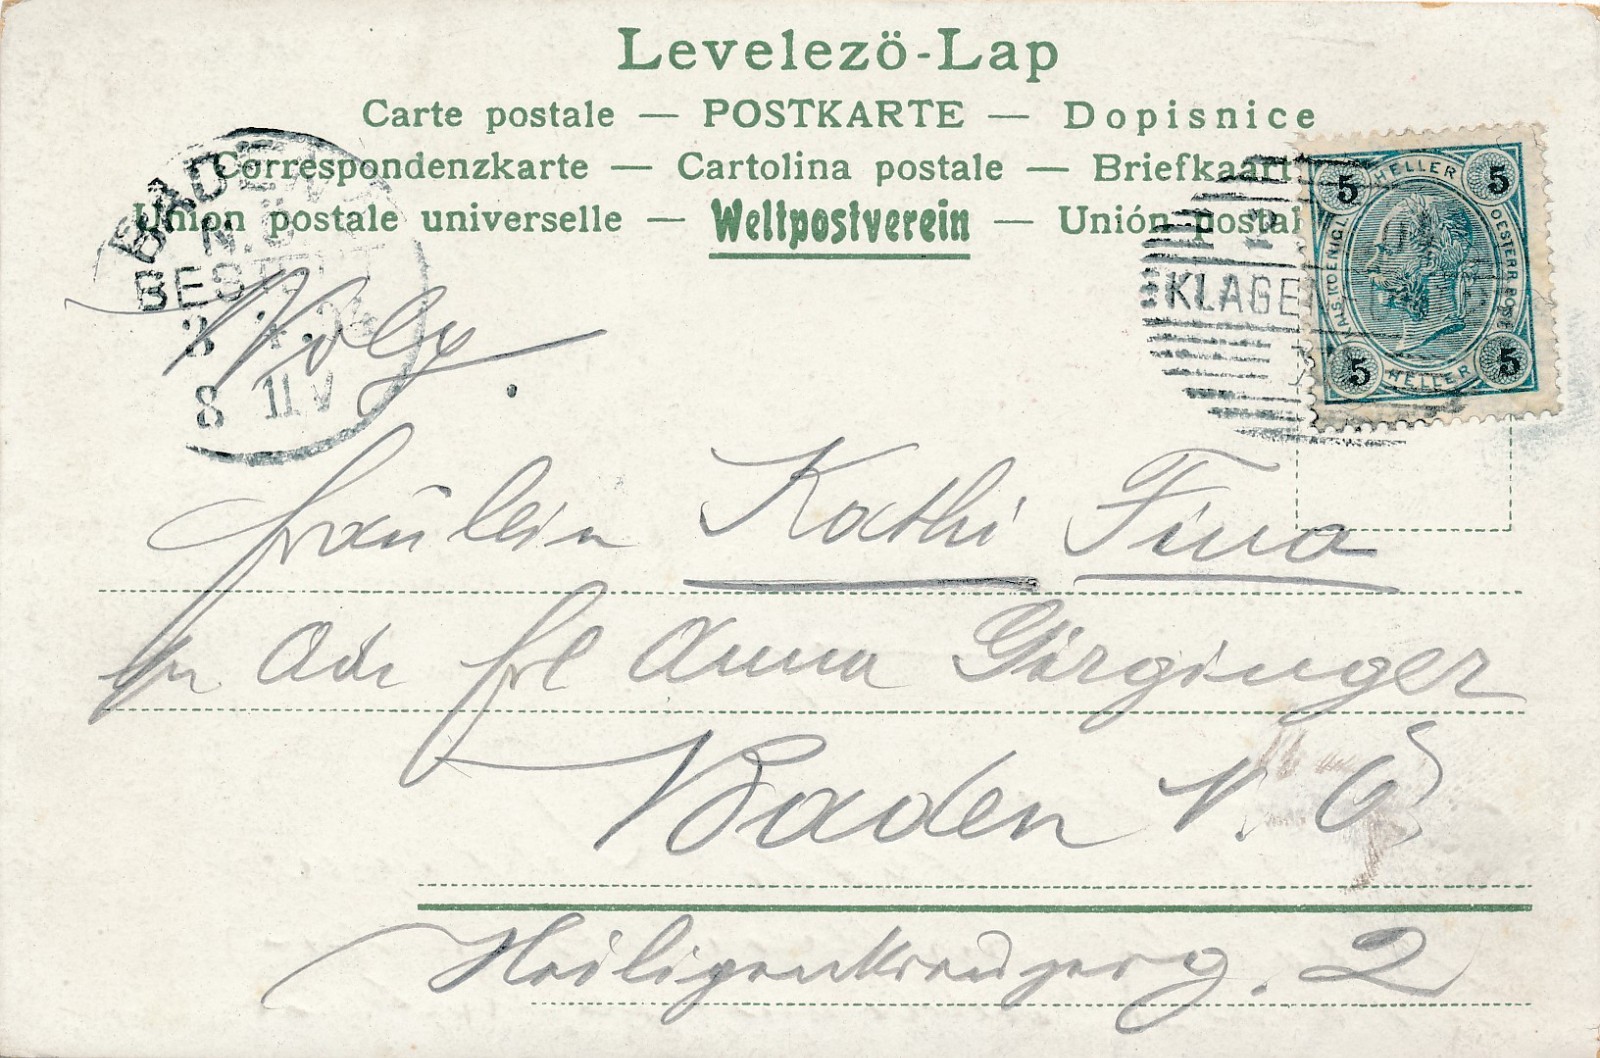 Levelezö-Lap
Carte postale — POSTKARTE — Dopisnice
Correspondenzkarte — Cartolina postale — Briefkaart
Union postale universelle — Weltpostverein — Unión postal
BADEN
N.Ö.
BESTELLT
8 11 V
KLAGE
5 HELLER 5
KAIS. KOENIGL. OESTERR. POST
5 HELLER 5
Fräulein Kathi Fina
Adr Frl Anna Görginger
Baden N. Ö
Heiligenkreuzerg. 2